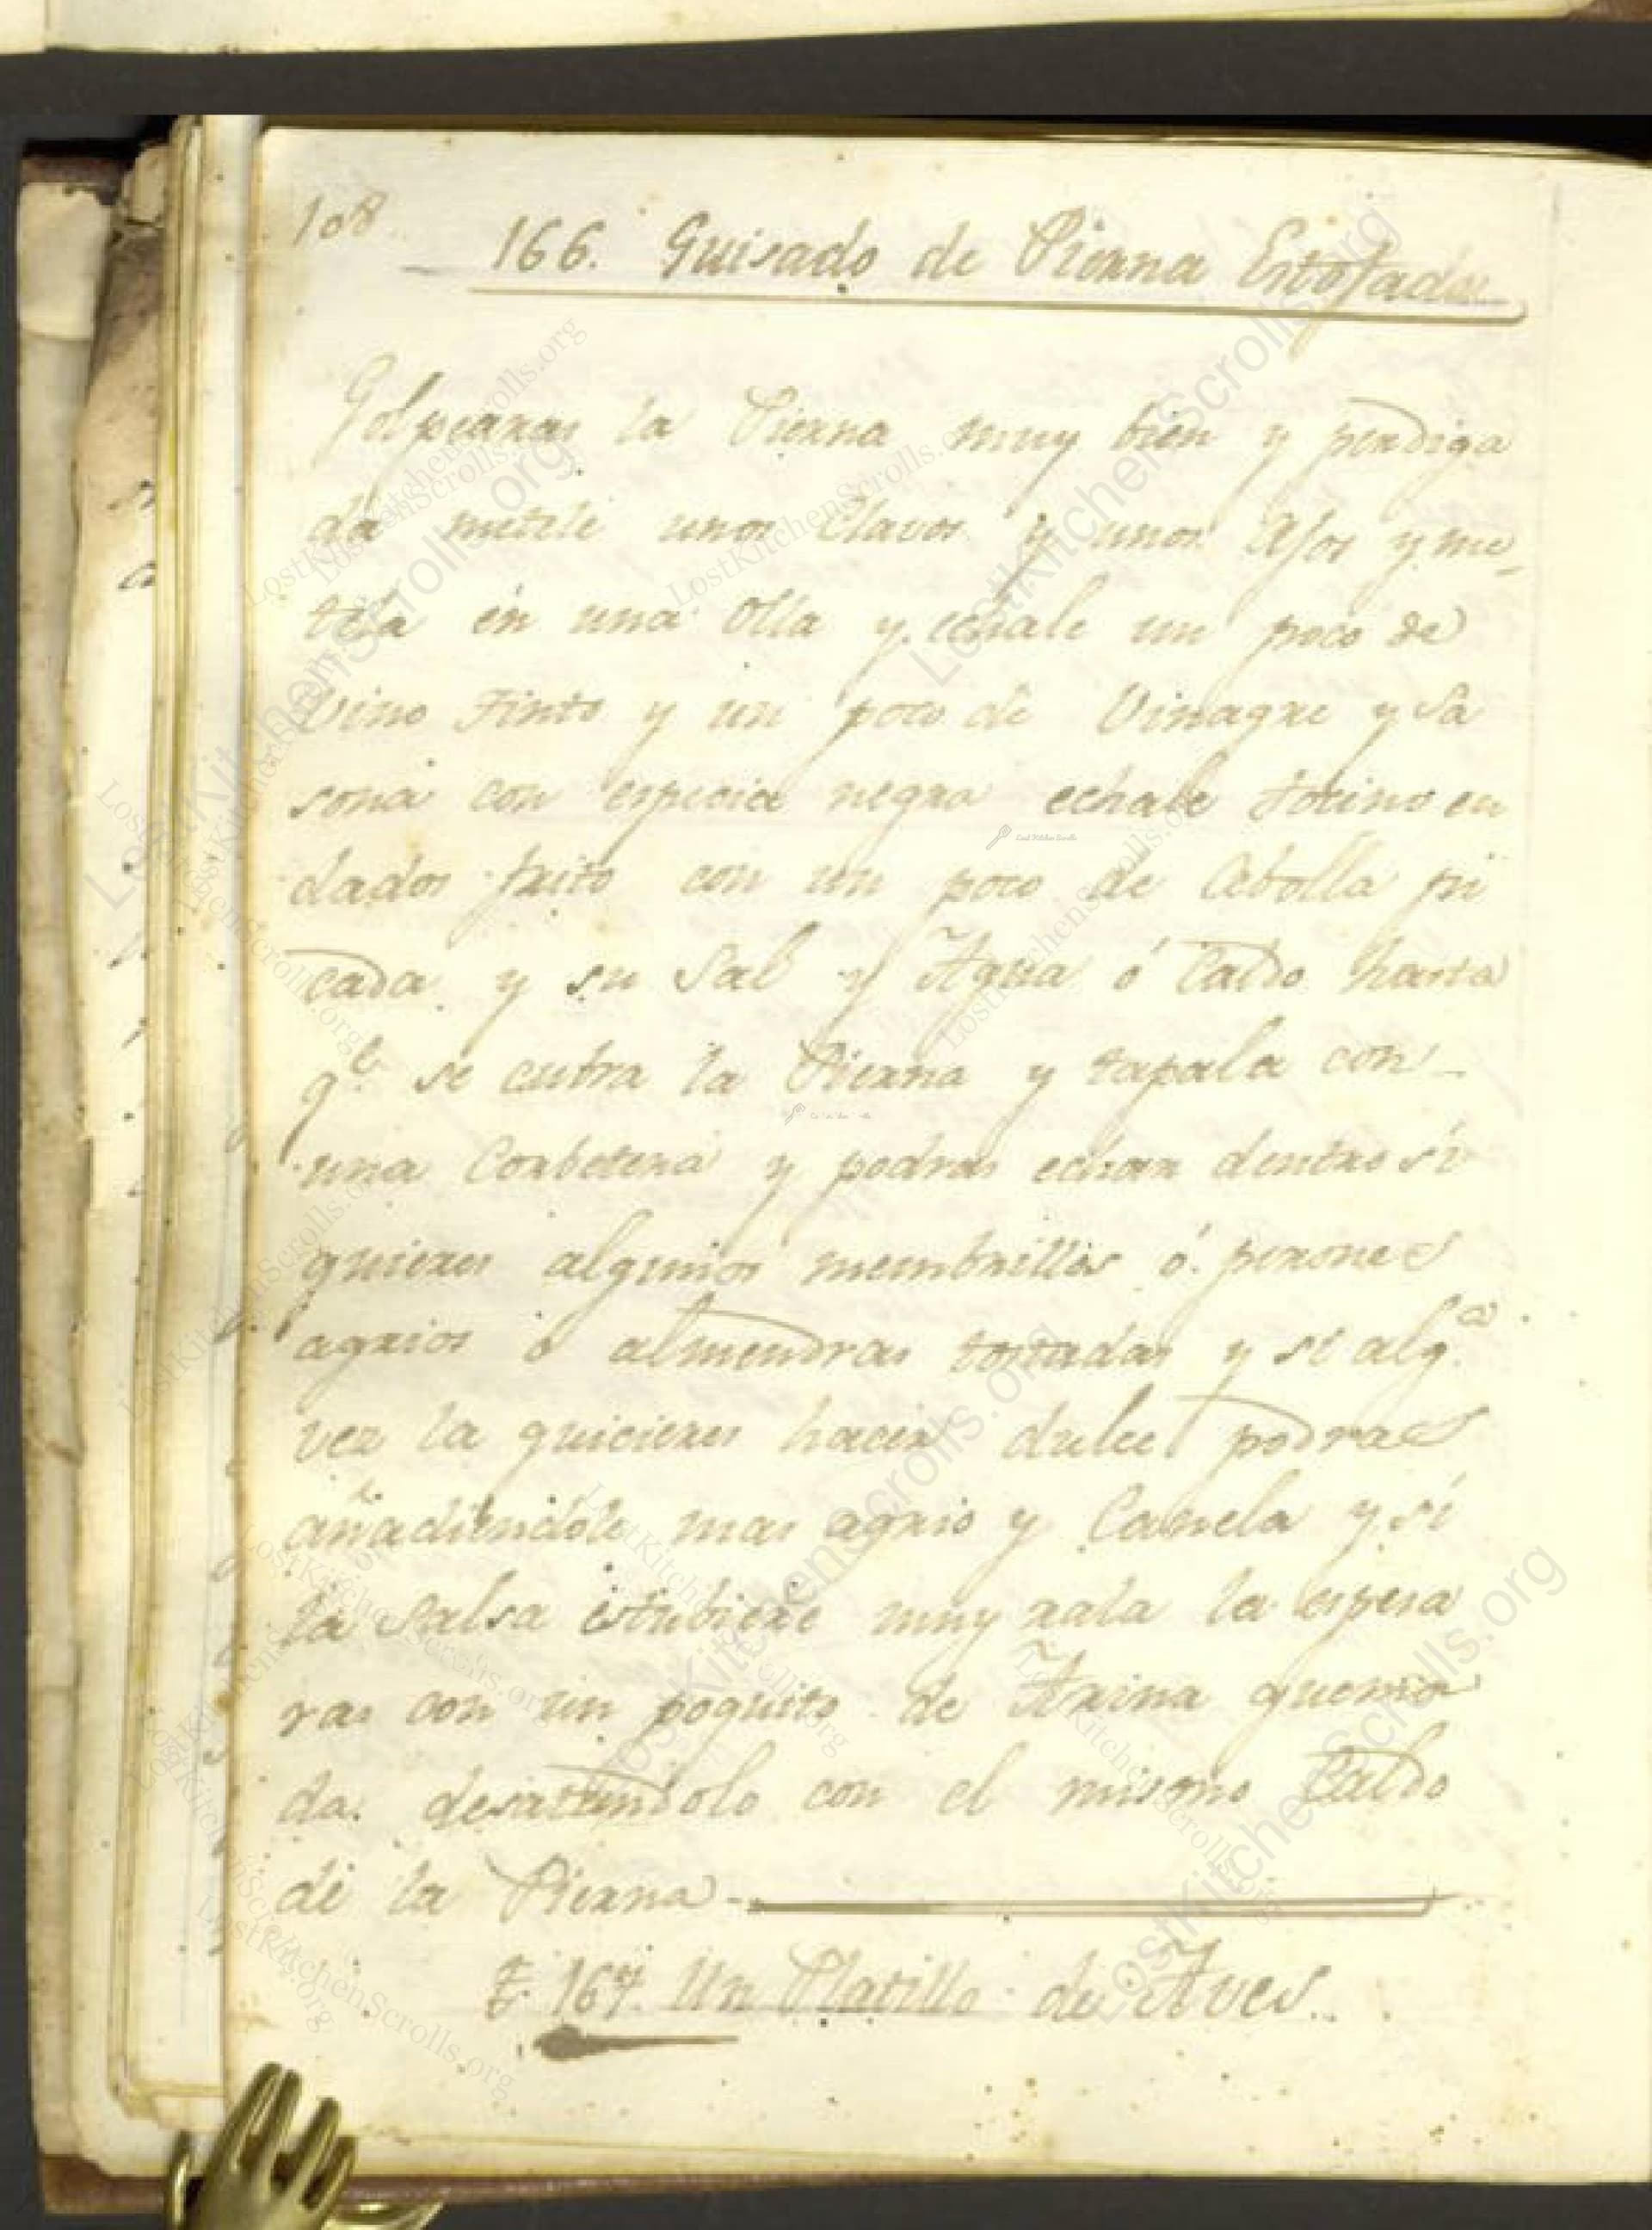 108
166. Guisado de Pierna Estofada
Golpearas la Pierna muy bien y perdiga
da metele unos Clavos y unos Ajos y me-
tela en una Olla y echale un poco de
Vino tinto y un poco de Vinagre y sa
sona con especia negra echale tocino en
dados frito con un poco de Cebolla pi
cada y su Sal y Agua ó Caldo hasta
qe. se cubra la Pierna y tapala con-
una Corbetera y podras echar dentro si
quieres algunos membrillos ó perones
agrios o almendras tostadas y si alga.
vez la quicieres hacer dulce podras
añadiendole mas agrio y Canela y si
la Salsa estubiere muy rala la espesa
ras con un poquito de Arina quema
da. desatandolo con el mismo Caldo
de la Pierna
167. Un Platillo de Aves.
LostKitchenScrolls.org